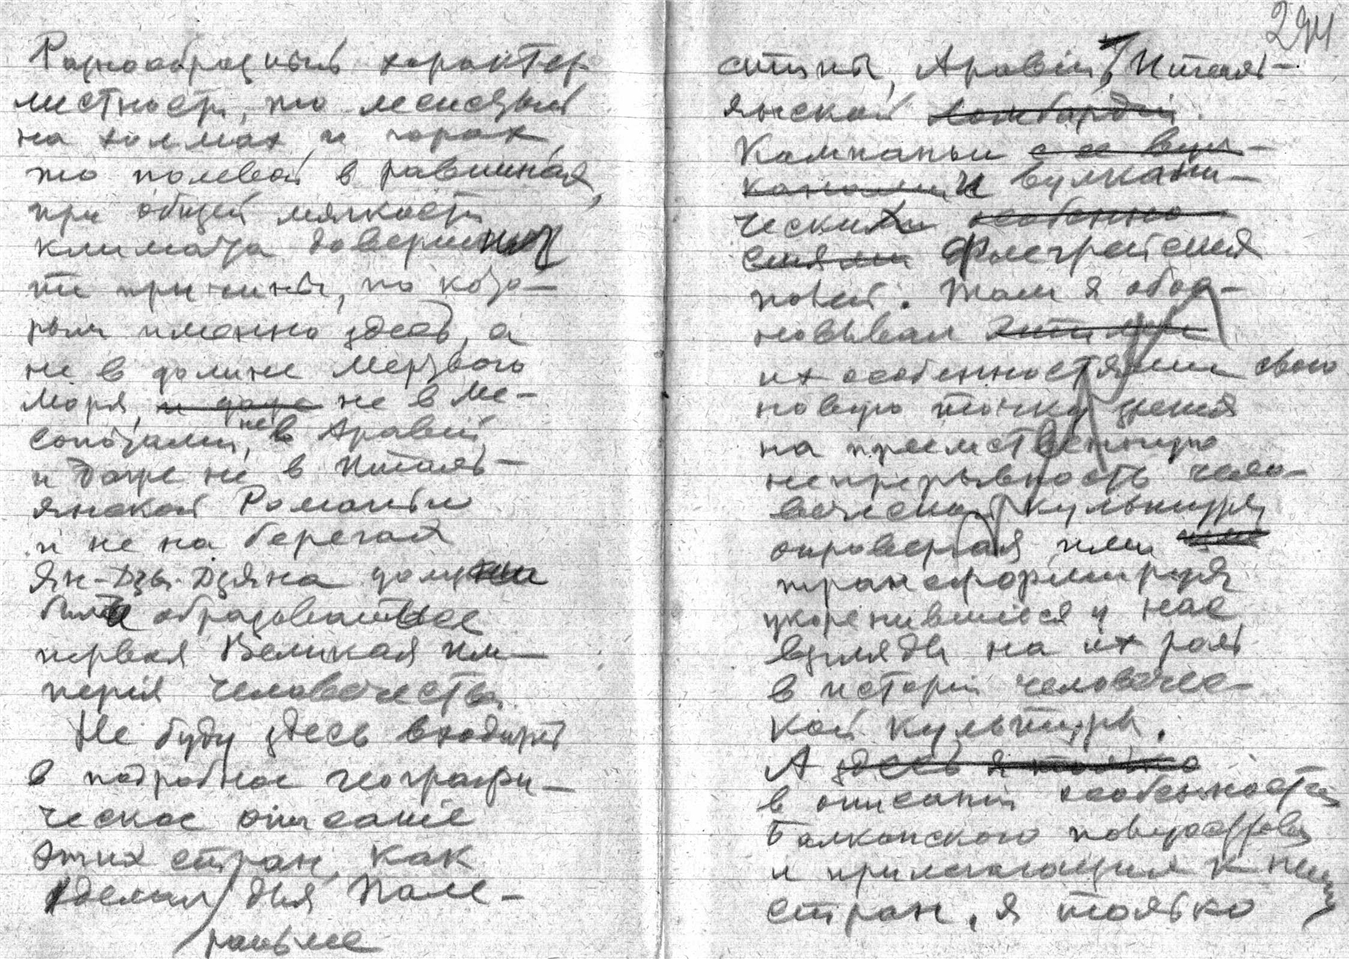 294
Разнообразный характер
местности, то лесистый
на холмах и горах,
то полевой в равнинах,
при общей мягкости
климата довершил
те причины, по кото-
рым именно здесь, а
не в долине Мертвого
моря, и даже не в Ме-
сопотамии, не в Аравии
и даже не в Италь-
янской Романьи
и не на берегах
Ян-Дзы-Дзяна должна
была образоваться
первая Великая им-
перия человечества.
Не буду здесь входить
в подробное географи-
ческое описание
этих стран, как
сделал для Пале-
раньше
стины, Аравии, Италь-
янской Ломбардии
Кампаньи с ее вул-
канами и вулкани-
ческих особенно-
стями Флегрейских
полей. Там я обос-
новывал
их особенностями свою
новую точку зрения
на преемственную
непрерывность чело-
веческой культуры
опровергая или
трансформируя
укоренившиеся у нас
взгляды на их роль
в истории человечес-
кой культуры.
А здесь я только
в описании особенностей
Балканского полуострова
и прилегающих к нему
стран, я только